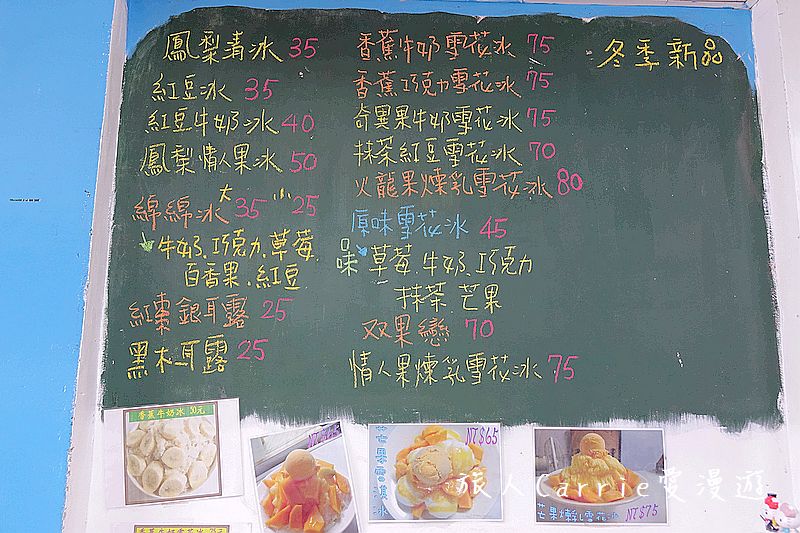 鳳梨清冰 35
紅豆冰 35
紅豆牛奶冰 40
鳳梨情人果冰 50
綿綿冰 大35 小25
牛奶.巧克力.草莓.
百香果.紅豆
紅棗銀耳露 25
黑木耳露 25
香蕉牛奶雪花冰 75
香蕉巧克力雪花冰 75
奇異果牛奶雪花冰 75
抹茶紅豆雪花冰 70
火龍果煉乳雪花冰 80
原味雪花冰 45
味 草莓.牛奶.巧克力
抹茶.芒果
双果戀 70
情人果煉乳雪花冰 75
冬季新品
香蕉牛奶冰 50元
芒果雪濃冰
NT$65
芒果煉乳雪花冰 NT$75
旅人Carrie愛漫遊